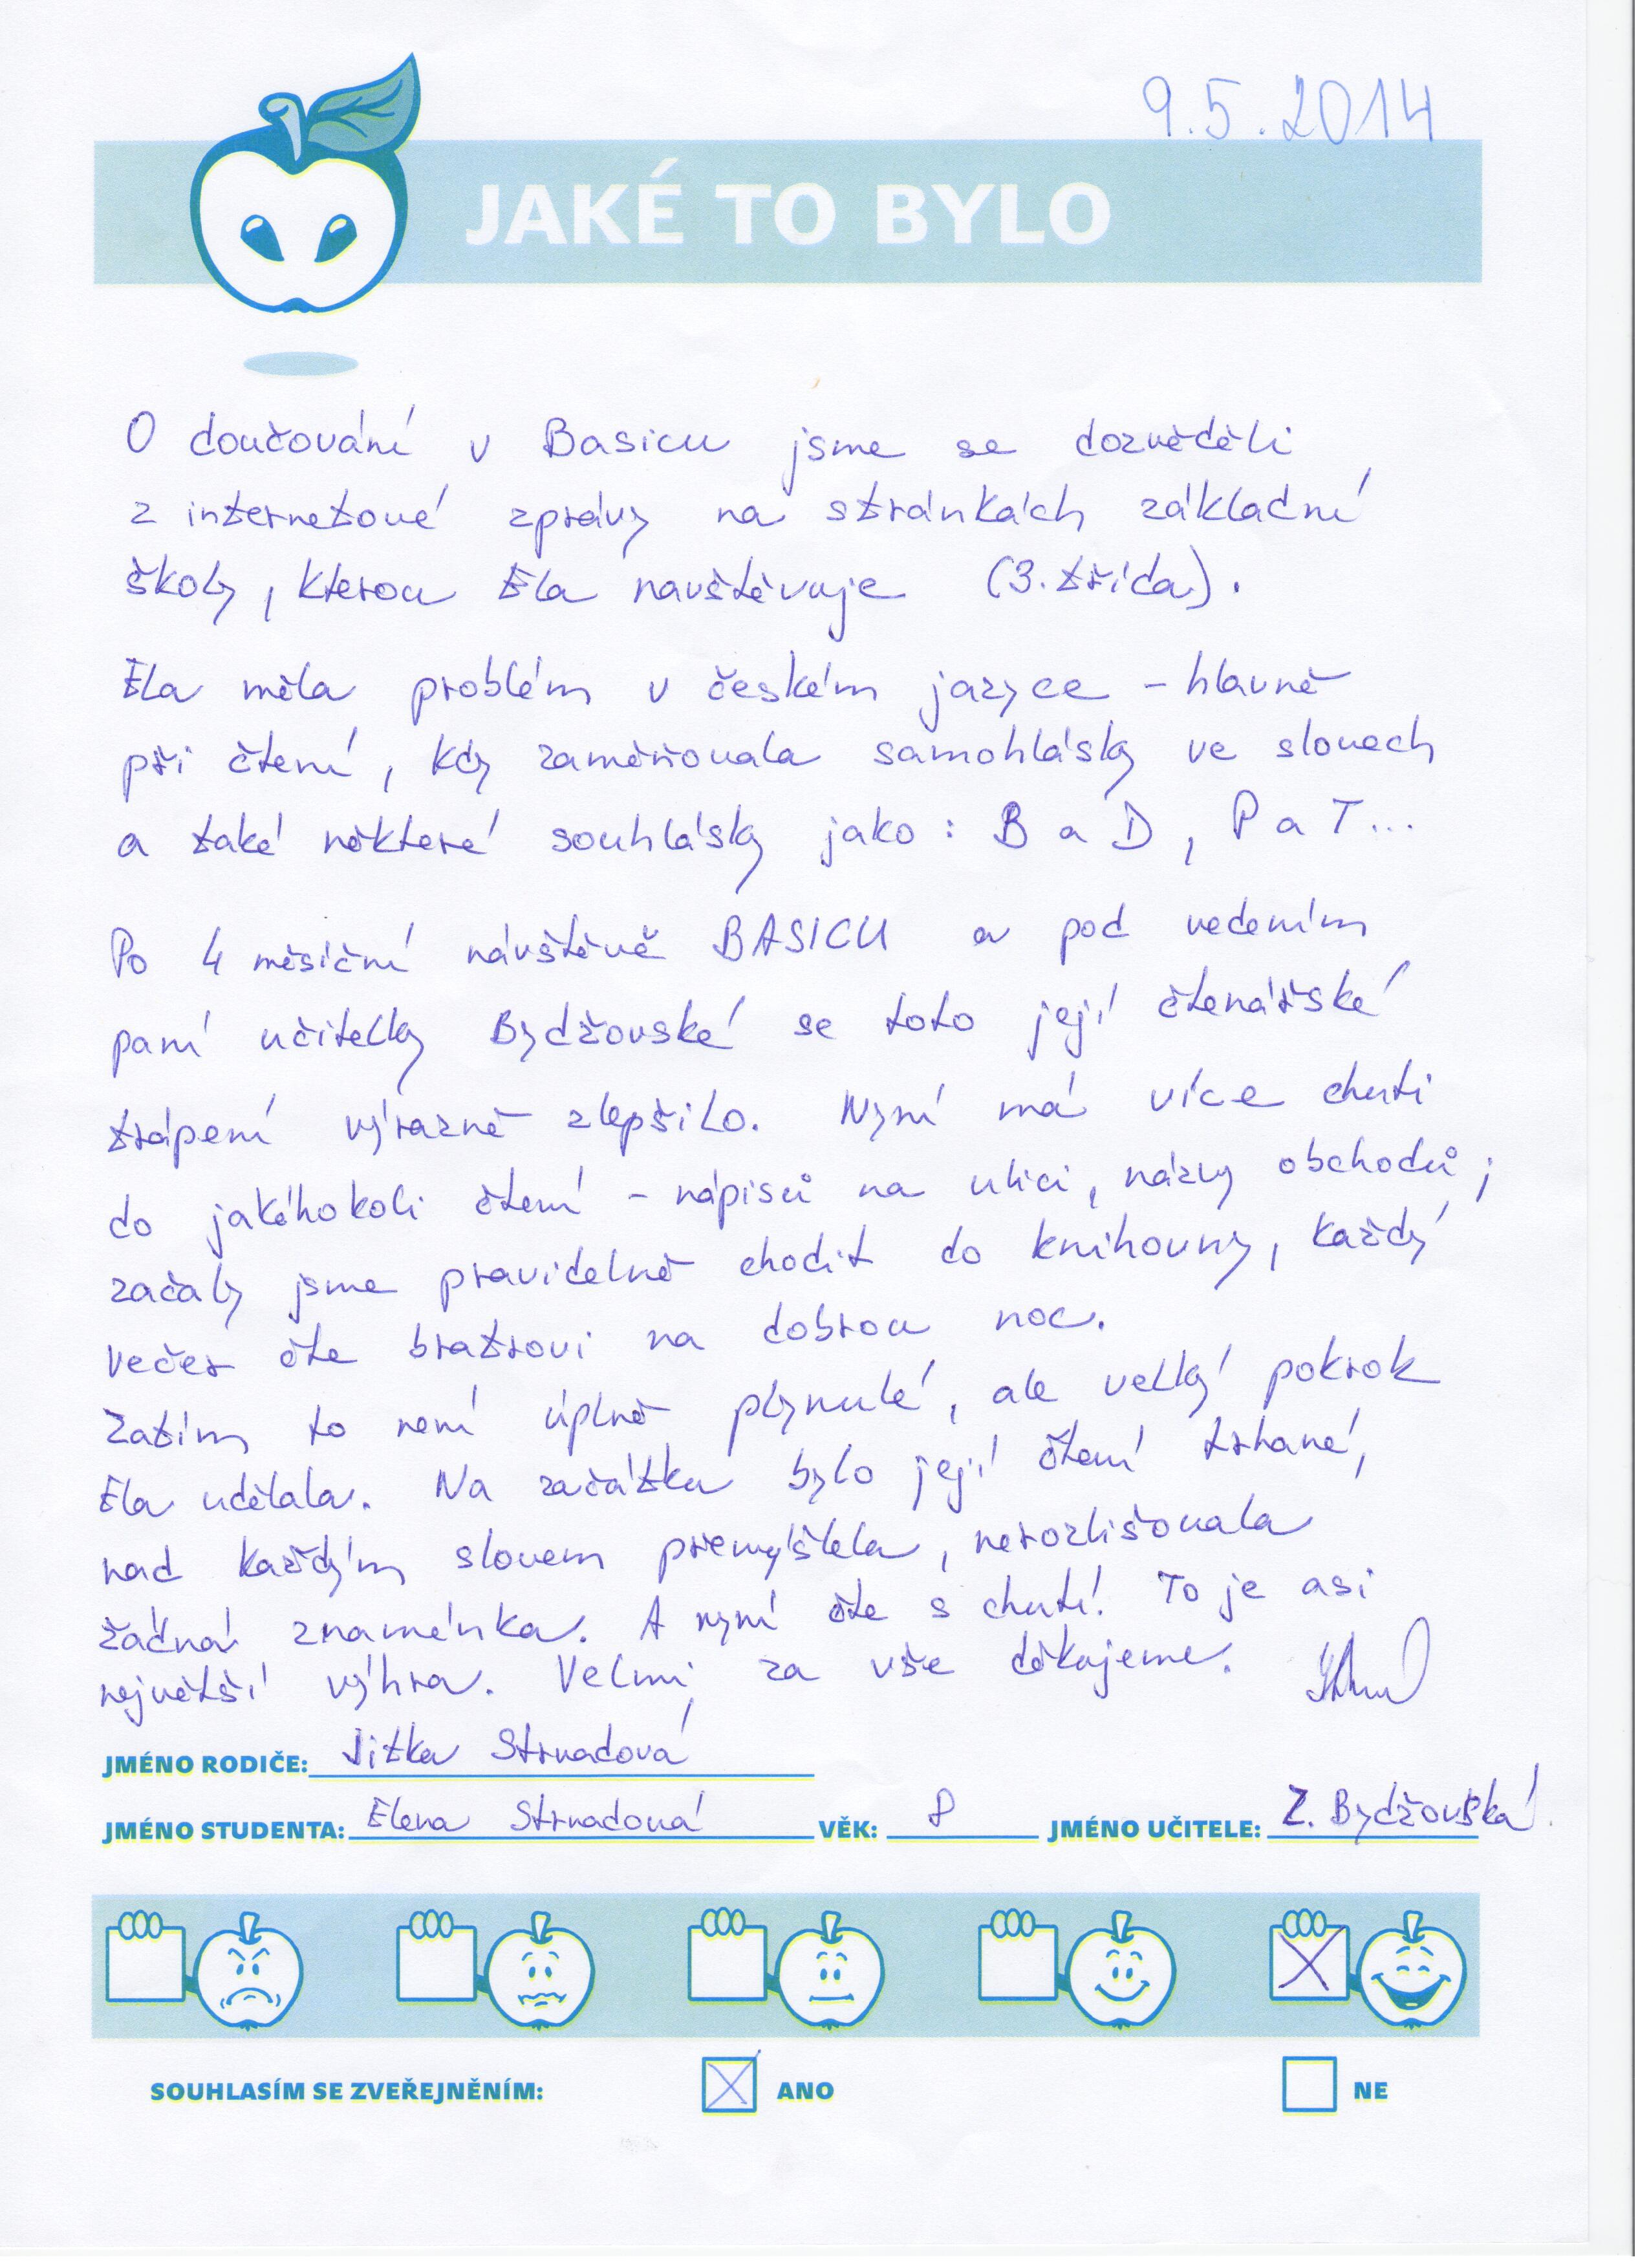 9.5.2014
JAKÉ TO BYLO
O doučování v Basicu jsme se dozvěděli
z internetové zprávy na stránkách základní
školy, kterou Ela navštěvuje (3. třída).
Ela měla problém v českém jazyce - hlavně
při čtení, kdy zaměňovala samohlásky ve slovech
a také některé souhlásky jako: B a D, P a T...
Po 4 měsíční návštěvě BASICU a pod vedením
paní učitelky Bydžovské se toto její čtenářské
trápení výrazně zlepšilo. Nyní má více chuti
do jakéhokoli čtení - nápisů na ulici, názvy obchodů;
začaly jsme pravidelně chodit do knihovny, každý
večer čte bratrovi na dobrou noc.
Zatím to není úplně plynulé, ale velký pokrok
Ela udělala. Na začátku bylo její čtení trhané,
nad každým slovem přemýšlela, nerozlišovala
žádná znaménka. A nyní čte s chutí! To je asi
největší výhra. Velmi za vše děkujeme.
JMÉNO RODIČE: Jitka Strnadová
JMÉNO STUDENTA: Elena Strnadová VĚK: 8 JMÉNO UČITELE: Z. Bydžovská
SOUHLASÍM SE ZVEŘEJNĚNÍM: ANO NE